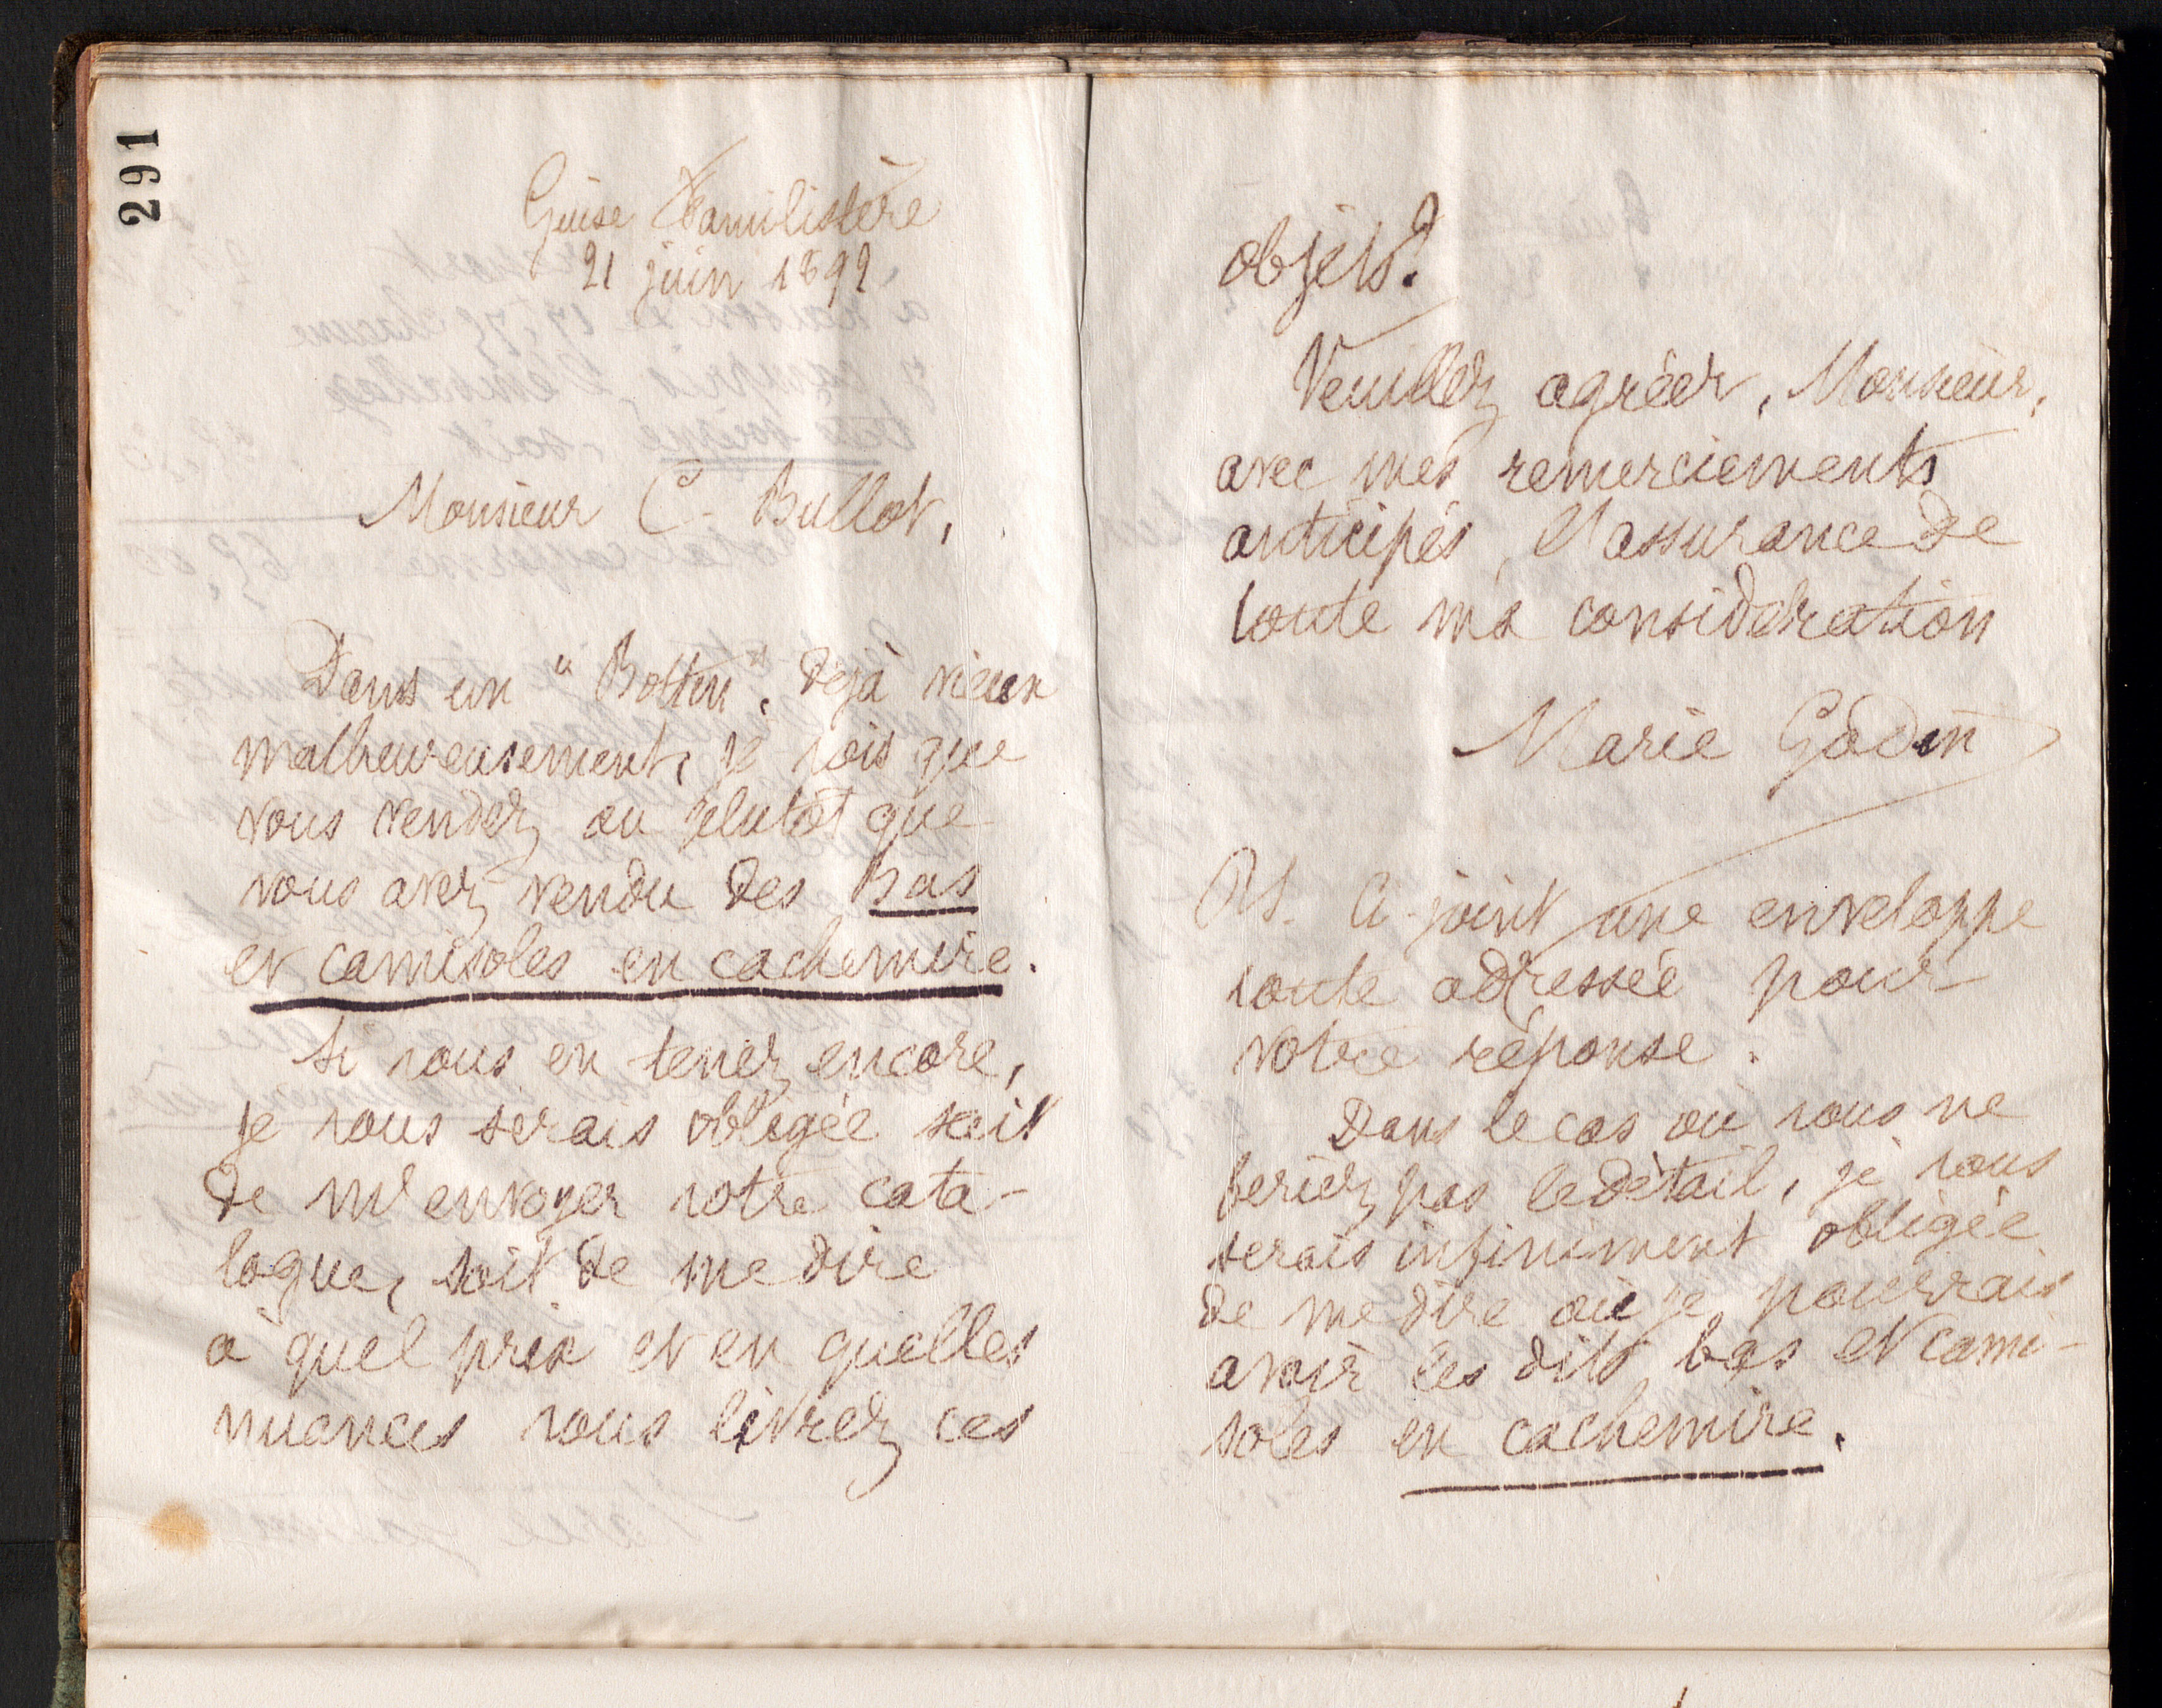 291
Guise Familistère
21 juin 1892
Monsieur C. Bullot,
Dans un "Bottin", déjà vieux
malheureusement, je vois que
vous vendez ou plutôt que
vous avez vendu des Bas
et camisoles en cachemire.
Si vous en tenez encore,
je vous serais obligée soit
de m'envoyer votre cata-
logue, soit de me dire
à quel prix et en quelles
nuances vous livrez ces
objets?
Veuillez agréer, Monsieur,
avec mes remerciements
anticipés, l'assurance de
toute ma considération
Marie Godin
PS. Ci-joint une enveloppe
toute adressée pour
votre réponse.
Dans le cas où vous ne
feriez pas le détail, je vous
serais infiniment obligée
de me dire où je pourrais
avoir les dits bas et cami-
soles en cachemire.